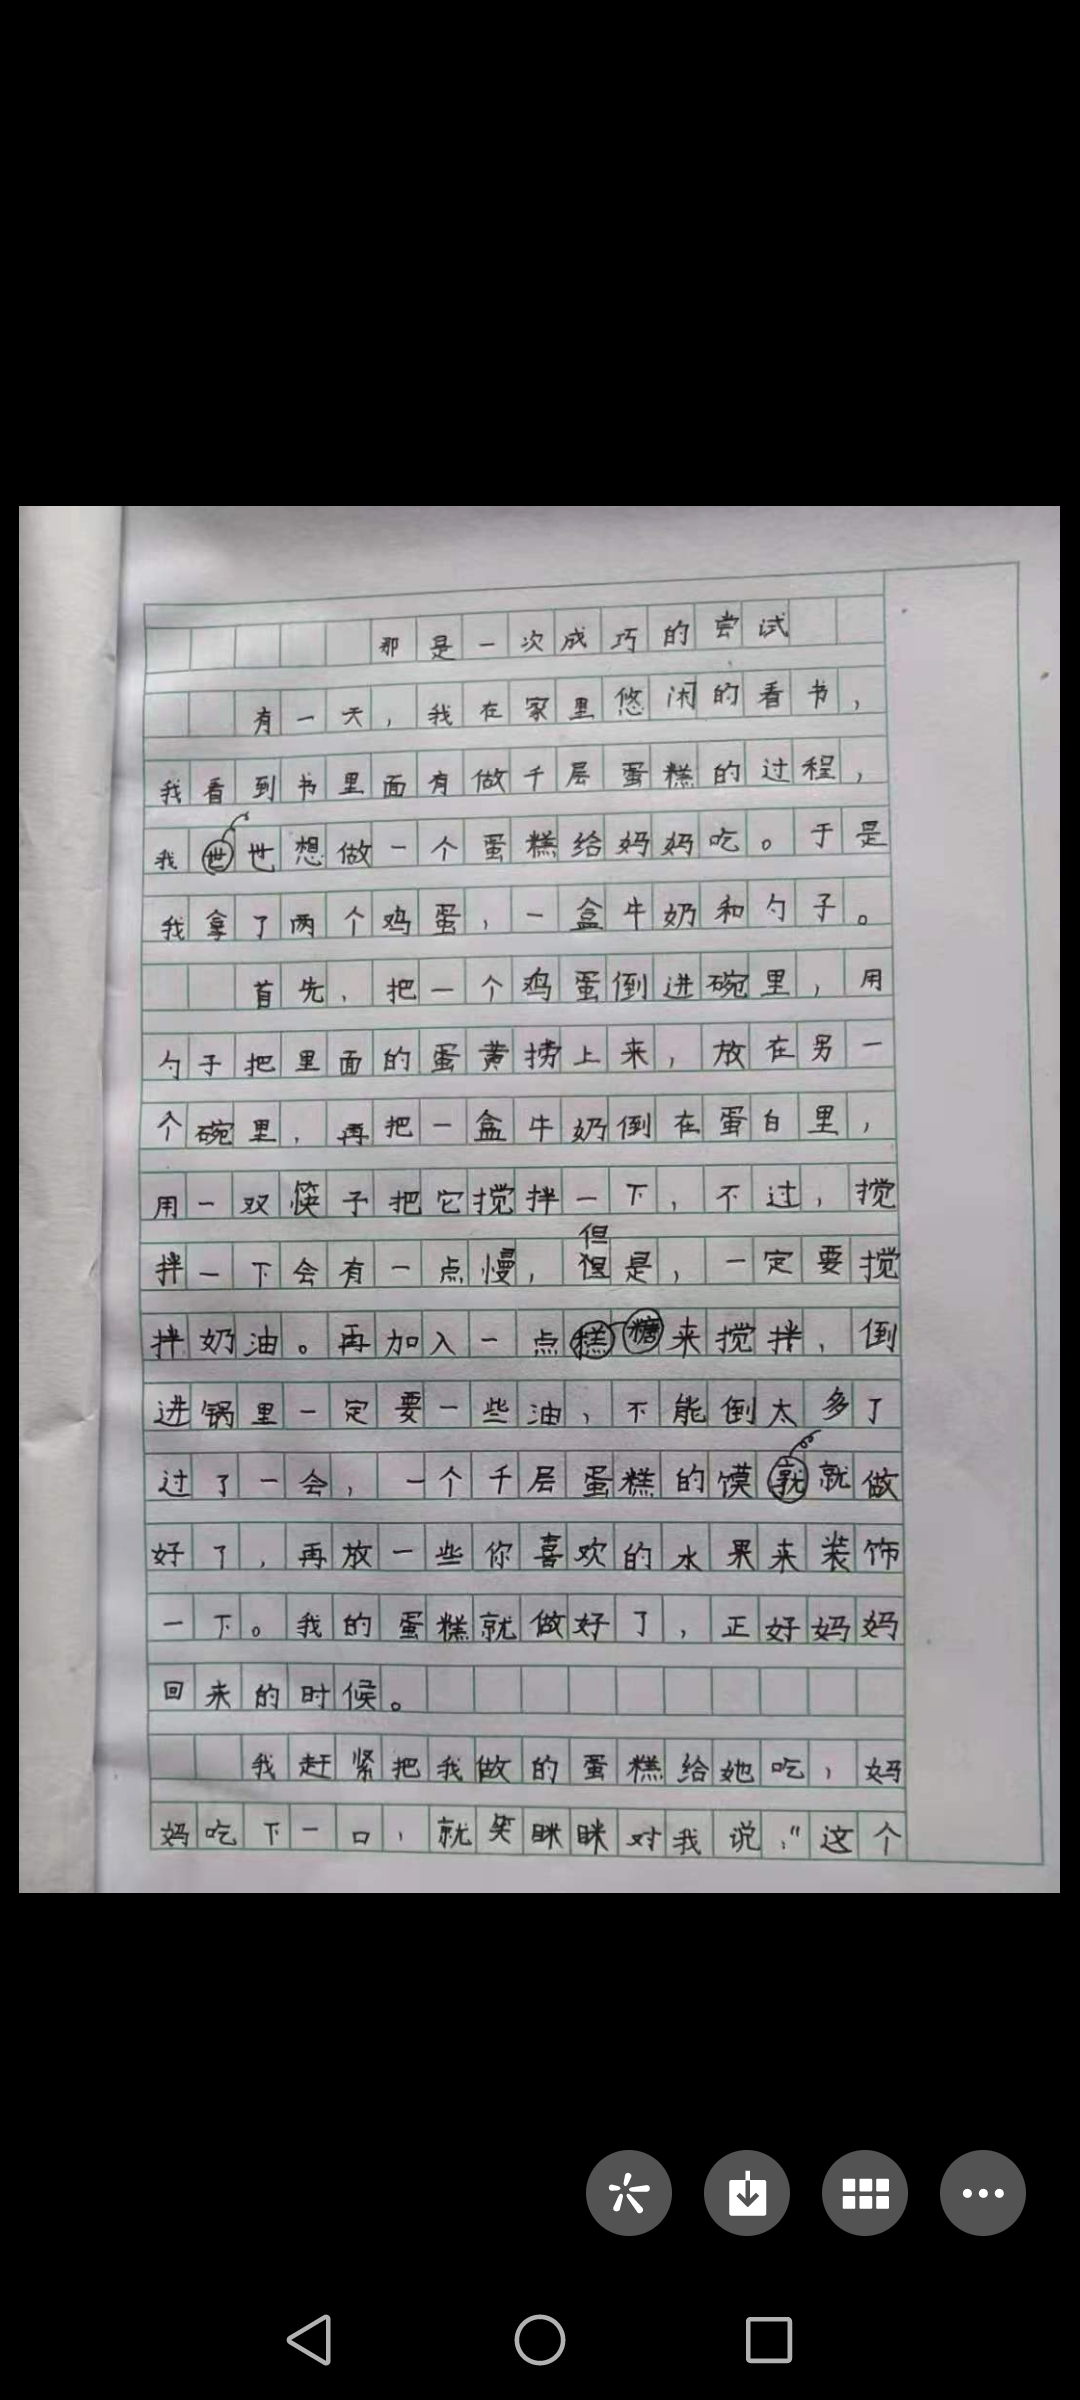 那是一次成巧的尝试
有一天，我在家里悠闲的看书，
我看到书里面有做千层蛋糕的过程，
我世想做一个蛋糕给妈妈吃。于是
我拿了两个鸡蛋，一盒牛奶和勺子。
首先，把一个鸡蛋倒进碗里，用
勺子把里面的蛋黄捞上来，放在另一
个碗里，再把一盒牛奶倒在蛋白里，
用一双筷子把它搅拌一下，不过，搅
拌一下会有一点慢，但是，一定要搅
拌奶油。再加入一点糖来搅拌，倒
进锅里一定要一些油，不能倒太多了
过了一会，一个千层蛋糕的馍就做
好了，再放一些你喜欢的水果来装饰
一下。我的蛋糕就做好了，正好妈妈
回来的时候。
我赶紧把我做的蛋糕给她吃，妈
妈吃下一口，就笑眯眯对我说：“这个